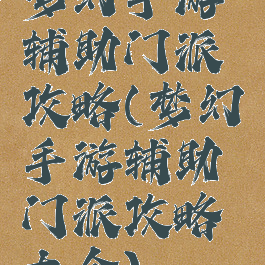 梦幻手游
辅助门派
攻略(梦幻
手游辅助
门派攻略
大全)